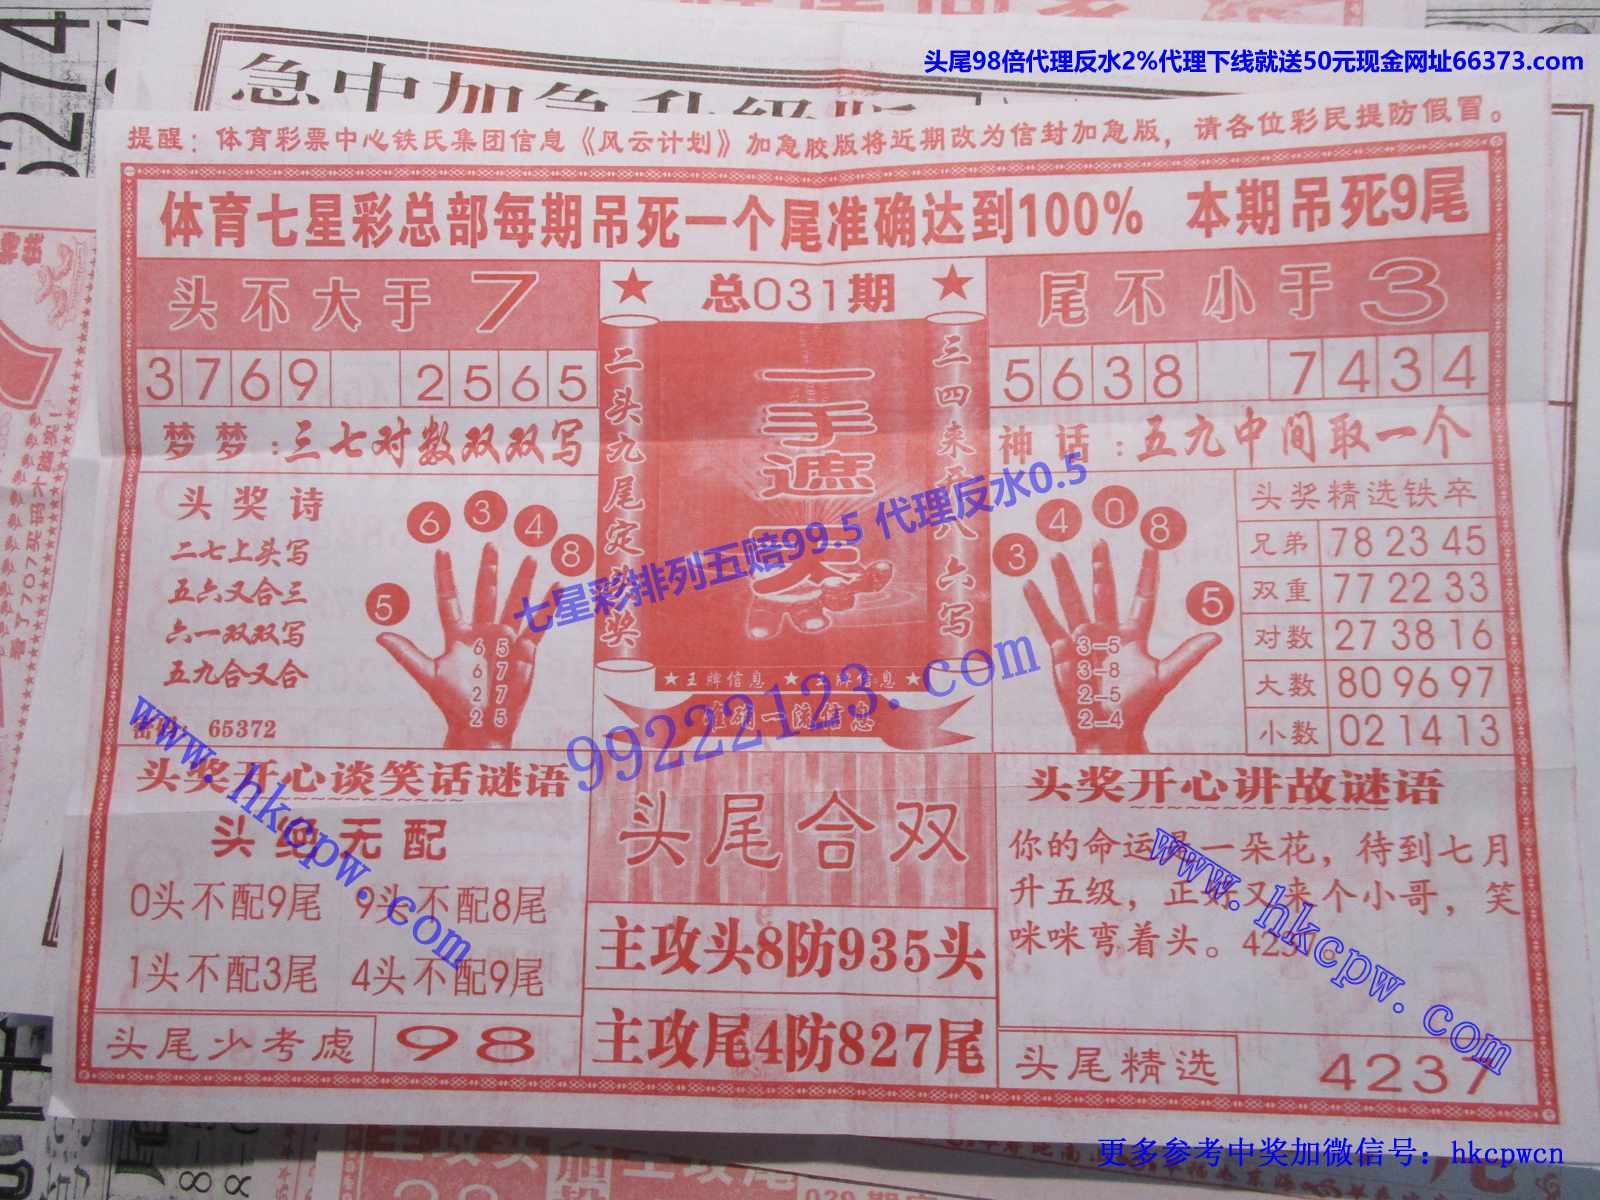 头尾98倍代理反水2%代理下线就送50元现金网址66373.com
急中加急升级版
提醒：体育彩票中心铁氏集团信息《风云计划》加急胶版将近期改为信封加急版，请各位彩民提防假冒。
体育七星彩总部每期吊死一个尾准确达到100% 本期吊死9尾
头不大于7
★ 总031期 ★
尾不小于3
3769 2565
5638 7434
二头九尾定
一手遮天
六写
梦梦：三七对数双双写
神话：五九中间取一个
头奖诗
二七上头写
五六又合三
六一双双写
五九合又合
65372
5 6 3 4 8
6 5
6 7
2 7
2 5
3 4 0 8 5
3-5
3-8
2-5
2-4
头奖精选铁卒
兄弟 78 23 45
双重 77 22 33
对数 27 38 16
大数 80 96 97
小数 02 14 13
★王牌信息★王牌信息★
七星彩排列五赔99.5 代理反水0.5
99222123.com
www.hkcpw.com
头奖开心谈笑话谜语
0头不配9尾 9头不配8尾
1头不配3尾 4头不配9尾
头尾少考虑 98
头尾合双
主攻头8防935头
主攻尾4防827尾
头奖开心讲故谜语
你的命运是一朵花，待到七月
升五级，正好又来个小哥，笑
咪咪弯着头。
www.hkcpw.com
头尾精选 4237
更多参考中奖加微信号：hkcpwcn